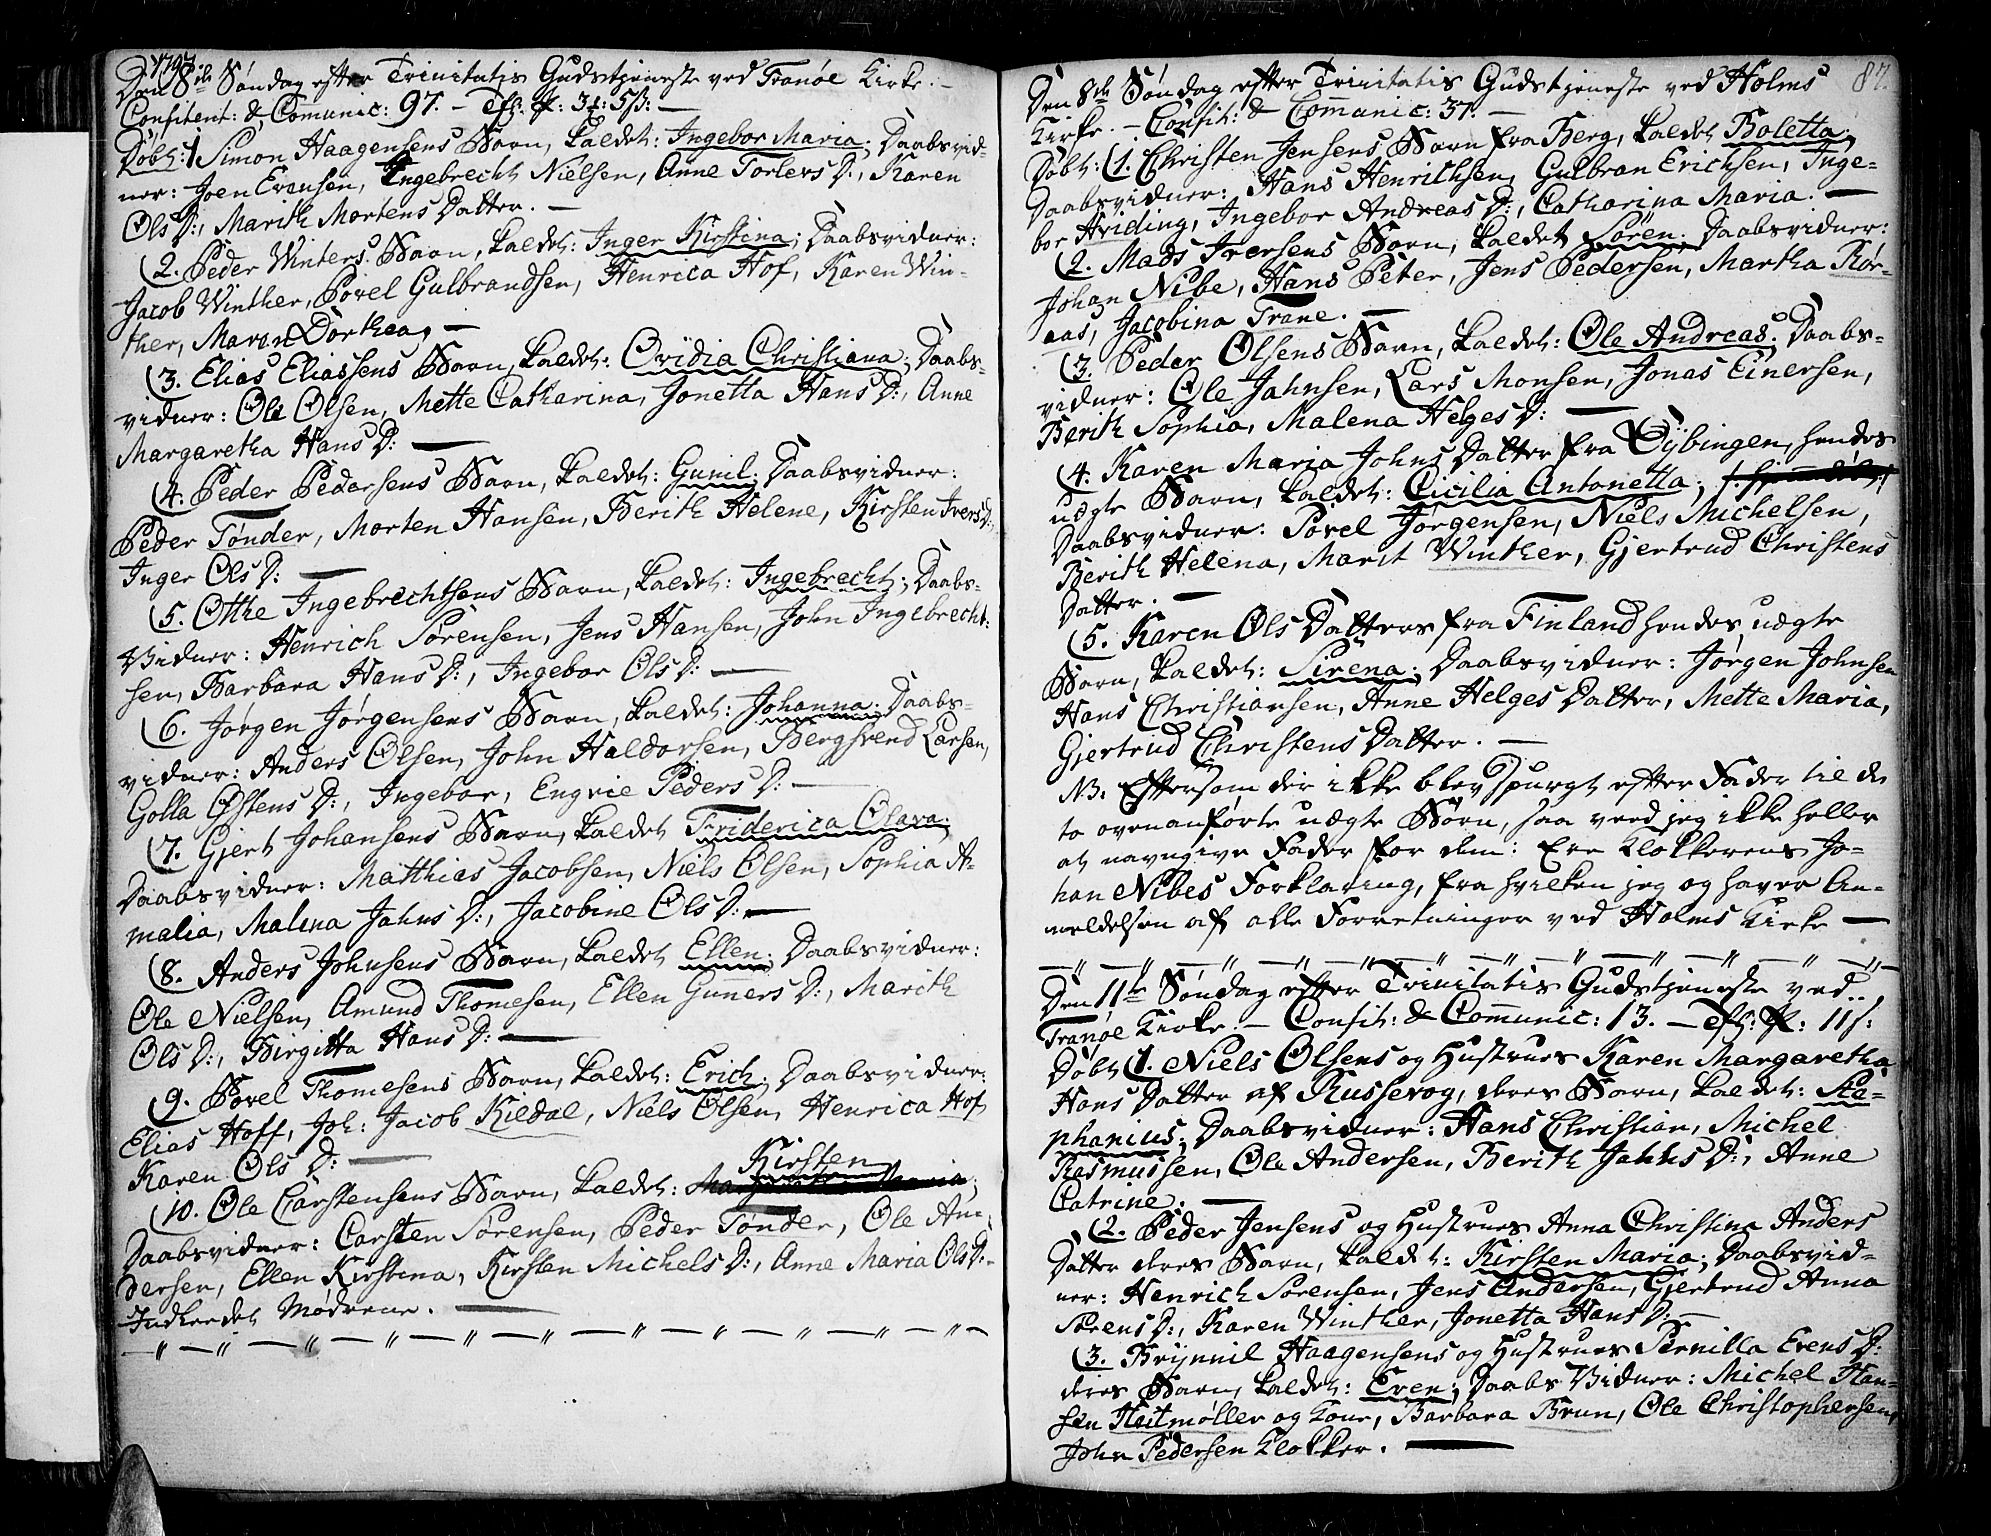 1797.
Den 8de Søndag efter Trinitatis Gudstjeneste ved Tranøe Kirke. -
Confitent: & Comunic: 97. -
Døbt: 1 Simon Haagensens Barn, kaldet: Ingebor Maria; Daabsvid-
ner: Joen Evensen, Ingebrecht Nielsen, Anne Torlevs D:, Karen
Ols D:, Marith Mortens Datter. -
(2. Peder Winters Barn, kaldet: Inger Kirstina; Daabsvidner:
Jacob Winther, Povel Gulbrandsen, Henrica Hof, Karen Win-
ther, Maren Dorthea, -
(3. Elias Eliassens Barn, kaldet: Ovidia Christiana; Daabs-
vidner: Ole Olsen, Mette Catharina, Jonetta Hans D:, Anne
Margaretha Hans D: -
(4. Peder Pedersens Barn, kaldet: Gunil; Daabsvidner:
Peder Tønder, Morten Hansen, Berith Helene, Kirsten Ivers D:,
Inger Ols D: -
(5. Otthe Ingebrechtsens Barn, kaldet: Ingebrecht; Daabs-
Vidner: Henrich Sørensen, Jens Hansen, John Ingebrecht-
sen, Barbara Hans D:, Ingebor Ols D: -
(6. Jørgen Jørgensens Barn, kaldet: Johanna; Daabs-
vidner: Anders Olsen, John Haldorsen, Bergsvend Larsen,
Golla Østens D:, Ingebor, Engvie Peders D: -
(7. Gjert Johansens Barn, kaldet Friderica Olava;
Daabsvidner: Matthias Jacobsen, Niels Olsen, Sophia A-
malia, Malena Jahns D:, Jacobine Ols D: -
(8. Anders Johnsens Barn, kaldet Ellen; Daabsvidner:
Ole Nielsen, Amund Thomesen, Ellen Gunners D:, Marith
Ols D:, Birgitta Hans D: -
(9. Povel Thomesens Barn, kaldet: Erich; Daabsvidner:
Elias Hoff, Joh: Jacob Kildal, Niels Olsen, Henrica Hof,
Karen Ols D: -
Kirsten
(10. Ole Carstensens Barn, kaldet: Margaretha Maria;
Daabsvidner: Carsten Sørensen, Peder Tønder, Ole An-
dersen, Ellen Kirstina, Kirsten Michels D:, Anne Maria Ols D: -
Indleedet Mødrene. -
87.
Den 8de Søndag efter Trinitatis Gudstjeneste ved Holms
Kirke. - Confit: & Comunic: 37. -
Døbt: (1. Christen Jensens Barn fra Berg, kaldet Boletta,
Daabsvidner: Hans Henrichsen, Gulbran Erichsen, Inge-
bor Hviding, Ingebor Andreas D:, Catharina Maria. -
(2. Mads Iversens Barn, kaldet Sören. Daabsvidner:
Johan Nibe, Hans Peter, Jens Pedersen, Martha Kør-
aas, Jacobina Trane. -
(3. Peder Olsens Barn, kaldet: Ole Andreas. Daabs-
vidner: Ole Jahnsen, Lars Monsen, Jonas Einersen,
Berith Sophia, Malena Helges D: -
(4. Karen Maria Johns Datter fra Dÿbingen, hendes
uægte Barn, kaldet: Cicilia Antonetta;
Daabsvidner: Povel Jørgensen, Niels Michelsen,
Berith Helena, Marit Winther, Gjertrud Christens
Datter. -
(5. Karen Ols Datters fra Finland hendes uægte
Barn, kaldet: Sirena; Daabsvidner: Jørgen Johnsen
Hans Christiansen, Anne Helges Datter, Mette Maria,
Gjertrud Christens Datter. -
NB. Eftersom der ikke blev spurgt efter Fader til de
to ovenanførte uægte Børn, saa veed jeg ikke heller
at navngive Fader for dem: Ere Klokkerens Jo-
han Nibes Forklaring, fra hvilken jeg og haver An-
meldelsen af alle Forretninger ved Holms Kirke -
Den 11te Søndag efter Trinitatis Gudstjeneste ved
Tranøe Kirke. - Confit: & Communic: 13. -
Døbt (1. Niels Olsens og Hustrues Karen Margaretha
Hans Datter af Russevog, deres Barn, kaldet: Ste-
phanius; Daabsvidner: Hans Christian, Michel
Rasmussen, Ole Andersen, Berith Jahns D:, Anne
Catrine. -
(2. Peder Jensens og Hustrues Anna Christina Anders
Datter deres Barn, kaldet: Kirsten Maria; Daabsvid-
ner: Henrich Sørensen, Jens Andersen, Gjertrud Anna
Sørens D:, Karen Winther, Jonetta Hans D: -
(3. Brÿnnil Haagensens og Hustrues Pernilla Evens D:
deres Barn, kaldet: Even; Daabs Vidner: Michel Han-
sen Heitmøller og Kone, Barbara Brun, Ole Christophersen,
John Pedersen Klokker. -